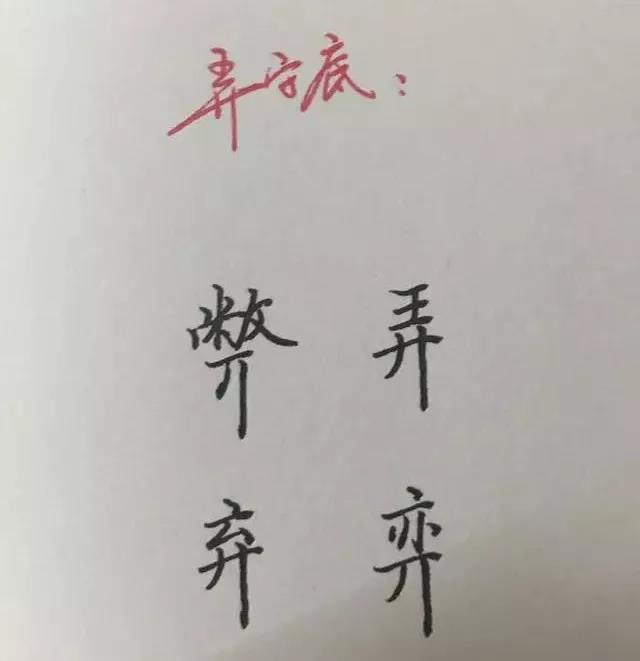 弄字底：
弊 弄
弃 弈